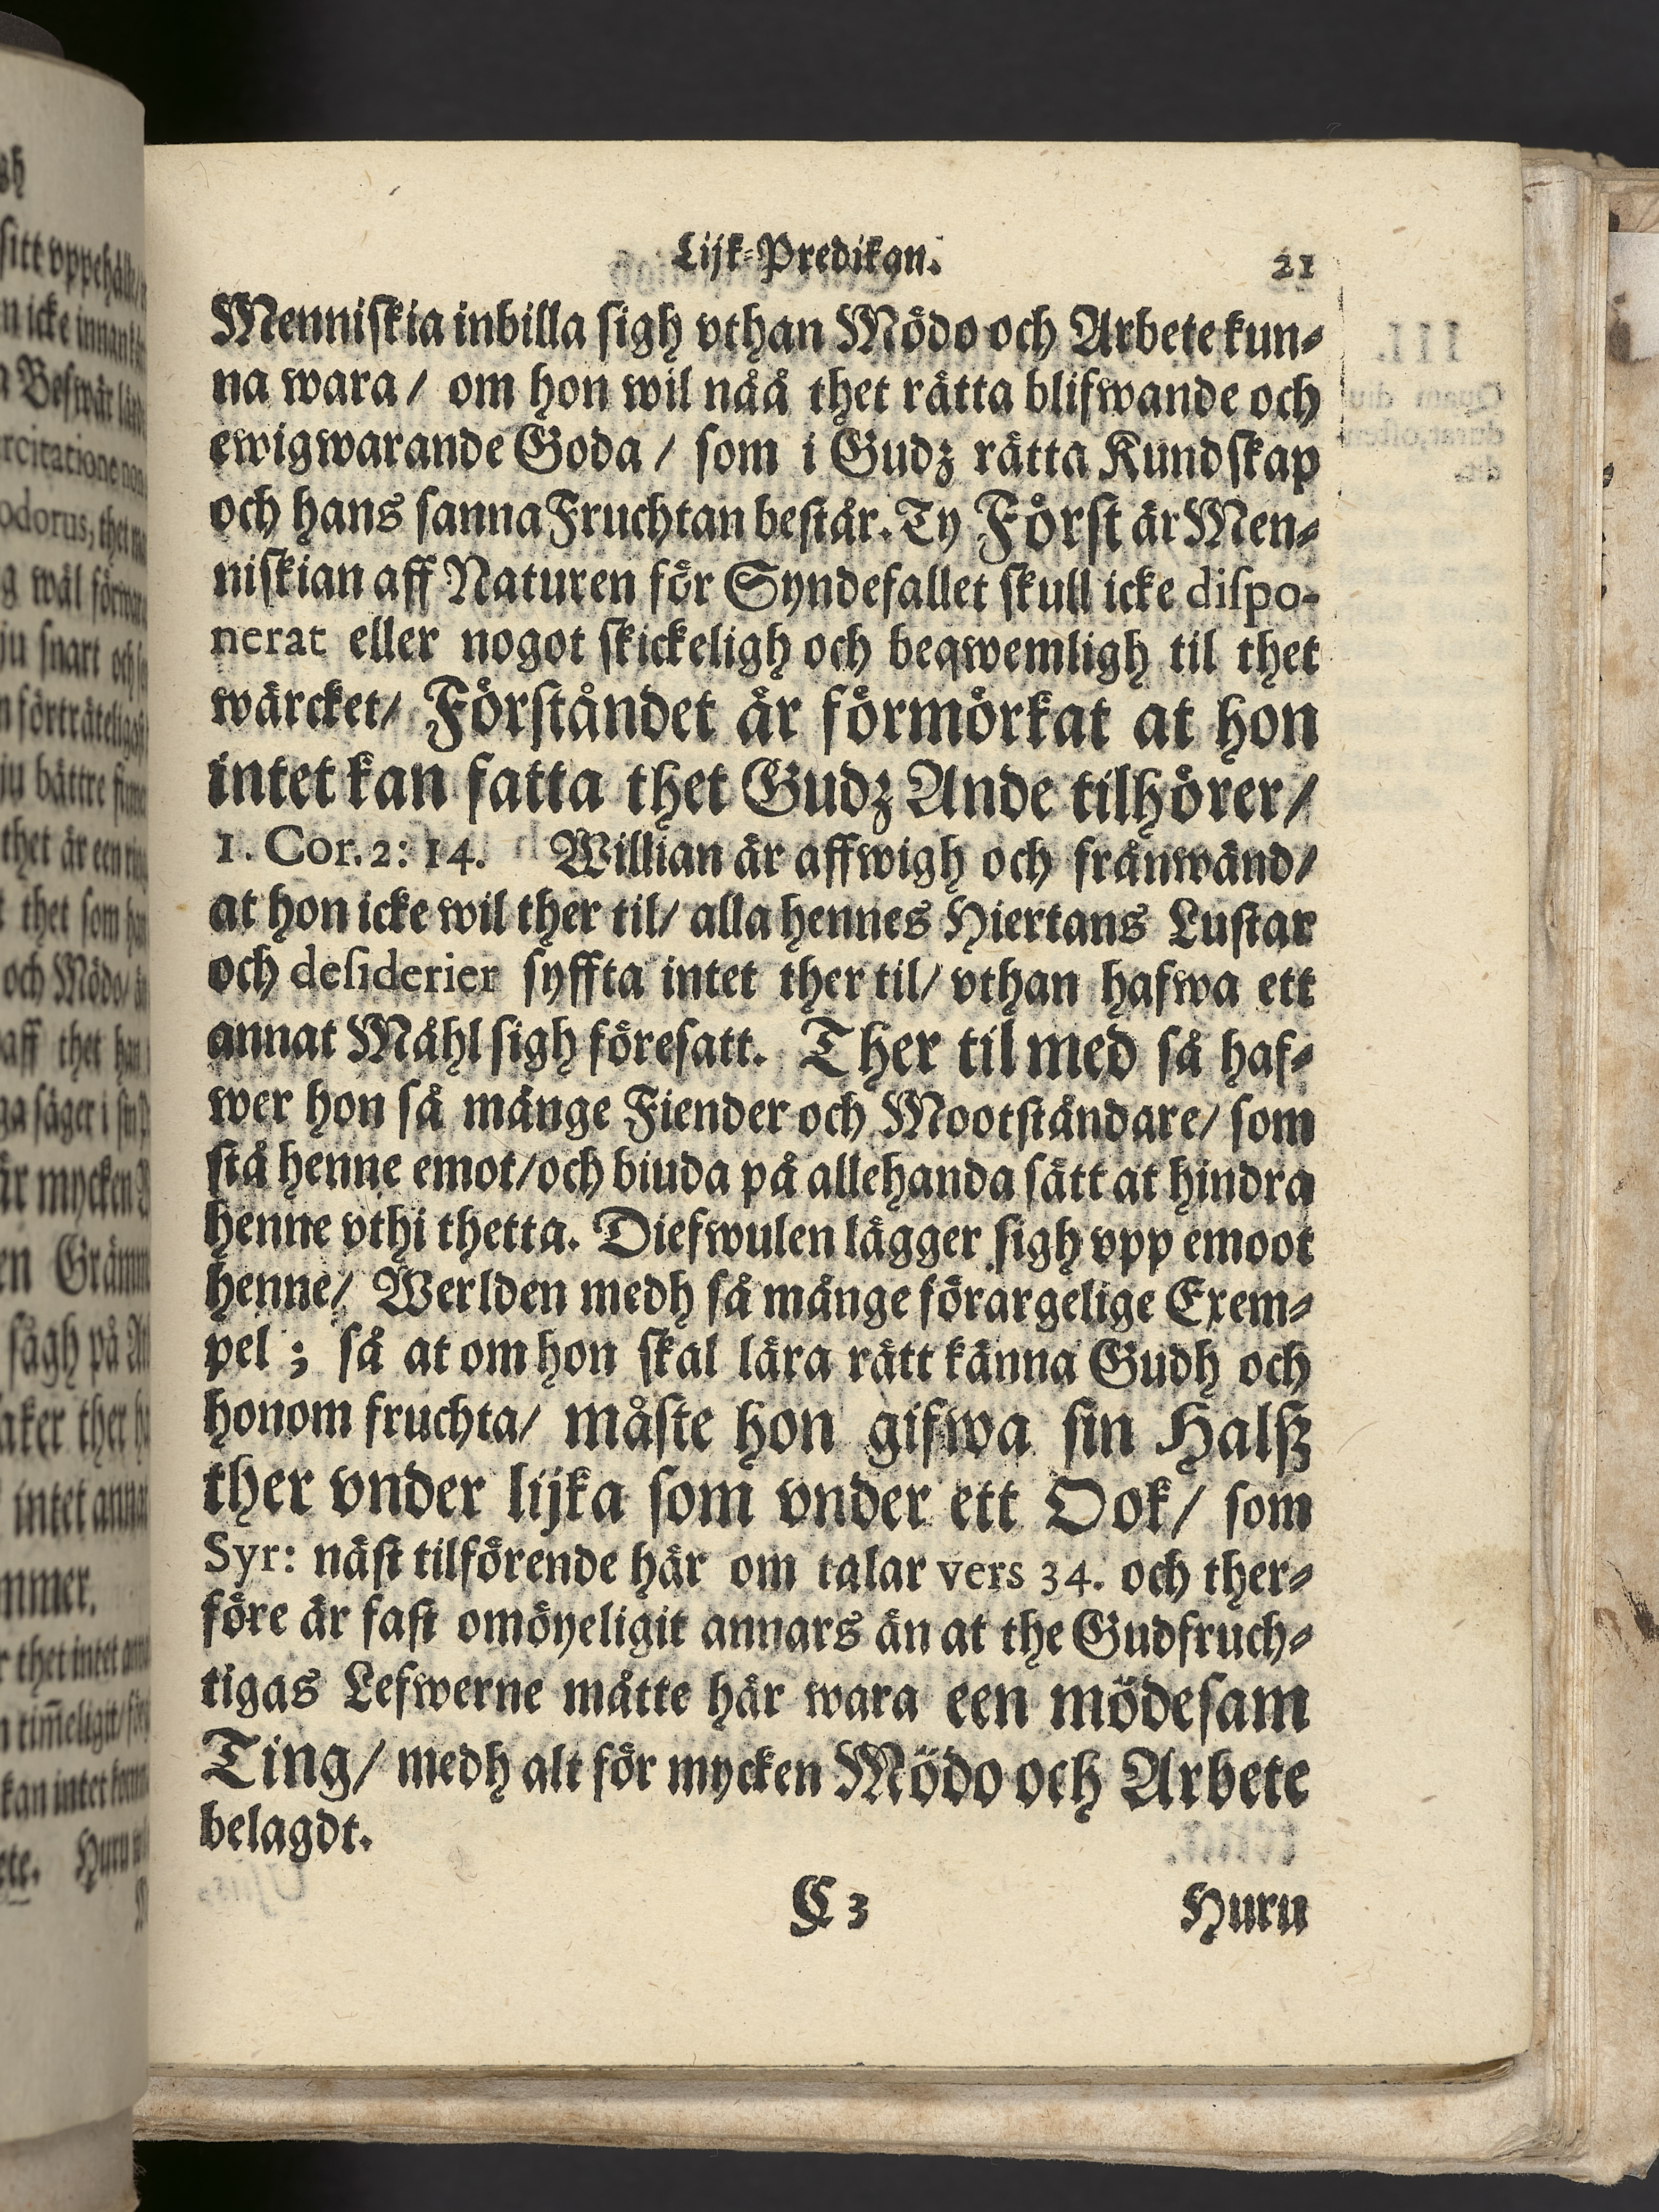 Lijk-Predikan. 21
Menniskia inbilla sigh vthan Mödo och Arbete kun-
na wara / om hon wil nåå thet rätta blifwande och
ewigwarande Goda / som i Gudz rätta Kundskap
och hans sanna Fruchtan består. Ty Först är Men-
niskian aff Naturen för Syndefallet skull icke dispo-
nerat eller nogot skickeligh och beqwemligh til thet
wärcket/ Förståndet är förmörkat at hon
intet kan fatta thet Gudz Ande tilhörer/
1. Cor. 2: 14. Willian är affwigh och frånwänd/
at hon icke wil ther til/ alla hennes Hiertans Lustar
och desiderier syffta intet ther til/ vthan hafwa ett
annat Måhl sigh föresatt. Ther til med så haf-
wer hon så månge Fiender och Mootståndare/ som
stå henne emot/och biuda på allehanda sätt at hindra
henne vthi thetta. Diefwulen lägger sigh vpp emoot
henne/ Werlden medh så månge förargelige Exem-
pel ; så at om hon skal lära rätt känna Gudh och
honom fruchta/ måste hon gifwa sin Halß
ther vnder lijka som vnder ett Ook/ som
Syr: näst tilförende här om talar vers 34. och ther-
före är fast omöyeligit annars än at the Gudfruch-
tigas Lefwerne måtte här wara een mödesam
Ting/ medh alt för mycken Mödo och Arbete
belagdt.
C 3 Huru